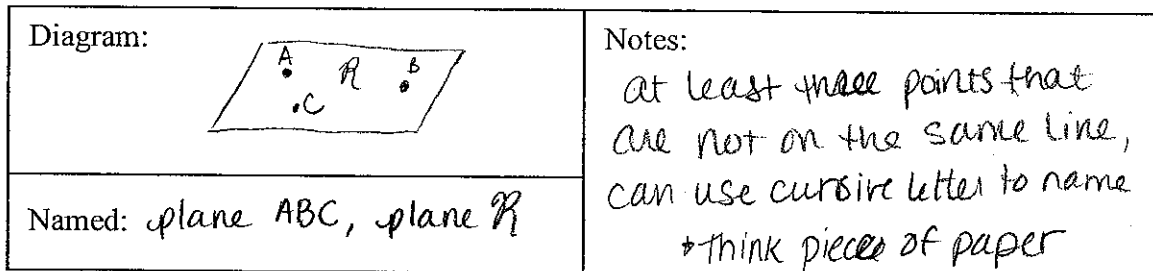 Diagram:
A
R
B
C
Named: plane ABC, plane R
Notes:
at least three points that
are not on the same line,
can use cursive letter to name
*think piece of paper